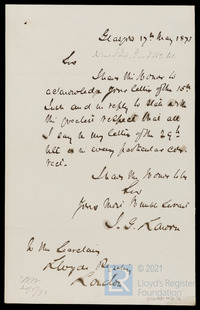 Glasgow 17th May 1873
Sir
I have the Honor to
acknowledge your letter of the 15th
Inst and in reply to state with
the greatest respect that all
I say in my letter of the 29th
ult is in every particular cor-
rect.
I have the Honor to be
Sir
Your Most Humble Servant
J. G. Lawrie
To the Secretary
Lloyds Register
London
© 2021
Lloyd's Register
Foundation